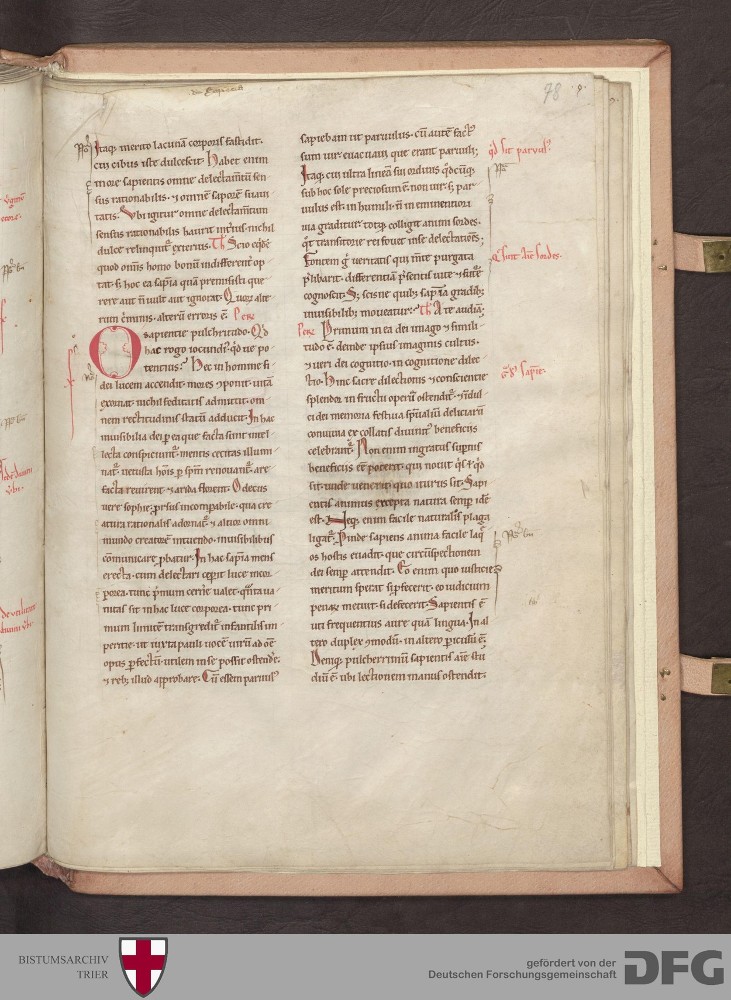 78
Itaq; merito lacunā corporis fastidit.
cui cibus iste dulcescit. Habet enim
more sapientis omne delectam̄tū sen
sus rationabilis. ⁊ omnē saporē suaui
tatis. Vbi igitur omne delectam̄tum
sensus rationabilis haurit int̄tus nichil
dulce relinquit̄ exterius. Th̄ Scio eqͥdē
quod om̄is homo bonū indifferent̄ op
tat. s; hoc ea sap̄ia quā premisisti que
rere aut n̄ uult aut ignorat. Quoꝝ alte
rum c̄minis. alterū erroris ē. Pere
O sapientie pulchritudo. Qͥd
hac rogo iocundiꝰ. qͥd ue po
tentius? Hec in homine fi
dei lucem accendit. mores ꝯponit. uitā
exornat. nichil feditatis admittit. om
nem rectitudinis statū adducit. In hac
inuisibilia dei per ea que facta sunt intel
lecta conspiciunt̄. mentis cecitas illumi
nat̄. uetusta hoīs ꝑ spm̄ renouant̄. are
facta reuirent. ⁊ arida florent. O decus
uere sophie. prorsus incōpabile. qua cre
atura rationalis adornat̄. ⁊ altior omni
mundo creatorē intuendo. inuisibilibus
cōmunicare ꝓbatur. In hac sap̄ia mens
erecta. cum delectari ceperit luce incor
porea. tunc pͥmum cern̄e ualet. qͣnta ua
nitas sit in hac luce corporea. tunc pri
mum limitē transgredit̄ infantilis in
peritie. ut iuxta pauli uocē uirū ad oē
opus ꝑfectū. utilem in se possit ostend̄e.
⁊ rebꝫ illud approbare. Cū essem paruulꝰ
sapiebam ut paruulus. cū autē factꝰ
sum uir. euacuaui que erant paruuli;
Itaq; cui ultra lineā sui ordinis qͥdcūq;
sub hoc sole preciosum ē. non uir. s; par
uulus est. in humili. n̄ in eminentiori
uia graditur. totaq; colligit animi sordes.
qͥ transitorie rei fouet in se delectationē;
Fontem gͦ ueritatis qui m̄te purgata
p̄libarit. differentiā p̄sentis uite ⁊ futͥe
cognoscit. S; scisne quibꝫ sap̄ia gradibꝫ
inuisibilibꝫ moueatur? Th̄ A te audiā;
Pere Primum in ea dei imago ⁊ simili
tudo ē. deinde ipsius imaginis cultus.
⁊ ueri dei cognitio. in cognitione dilec
tio. Hinc sacre dilectionis ⁊ conscientie
splendor. in fructu operū ostendit̄.
ci dei memoria festiua spūaliū deliciarū
conuiuia ex collatis diuinitꝰ beneficiis
celebrant̄. Non enim ingratus supnis
beneficiis eē poterit. qui nouit qͥs ł qͥd
sit. unde uenerit. quo iturus sit. Sapi
entis animus excepta natura semp idē
est. Neq; enim facile naturalis plaga
ligat̄. Proinde sapiens anima facile laq̄
os hostis euadit. que circūspectionem
dei semp attendit. Eo enim quo iusticie
meritum sperat si ꝑfecerit. eo iudicium
penaꝝ metuit. si defecerit. Sapientis ē
uti frequentius aure quā lingua. In al
tero duplex ⁊modū. in altero ꝑiculū ē.
Deniq; pulcherrimū sapientis aīe stu
diū ē. ubi lectionem manus ostendit.
qͥd sit paruulꝰ
Qͥ sunt aīe sordes.
BISTUMSARCHIV
TRIER
gefördert von der
Deutschen Forschungsgemeinschaft
DFG